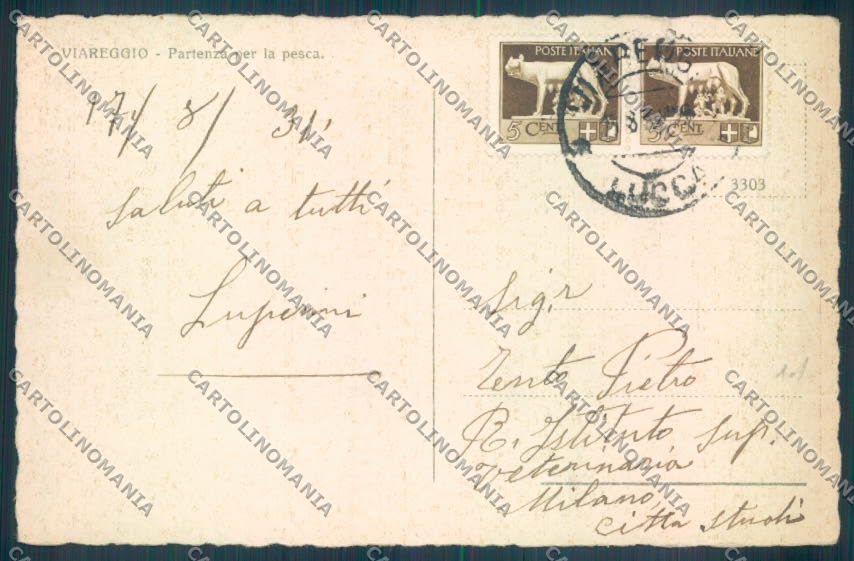 VIAREGGIO - Partenza per la pesca.
17/8/31'
saluti a tutti
Luperini
POSTE ITALIANE
5 CENT.
POSTE ITALIANE
5 CENT.
VIAREGGIO
LUCCA
3303
Sigr
Pietro
R. Istituto sup.
veterinaria
Milano,
città studi
CARTOLINOMANIA